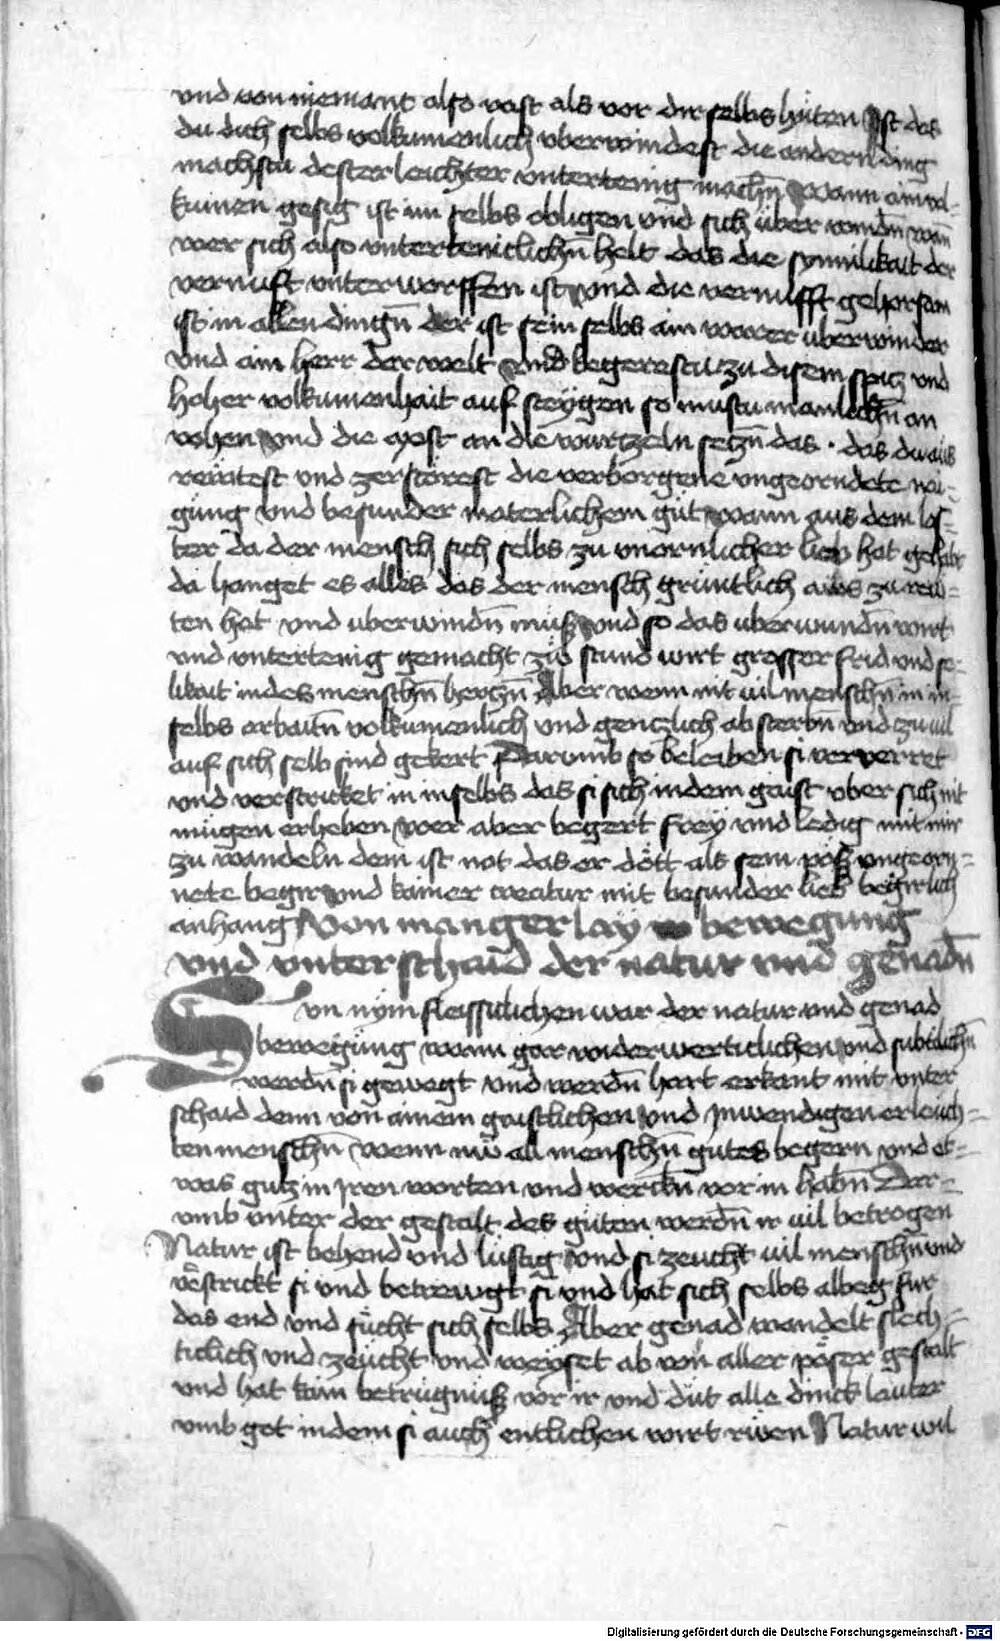 vnd von niemant also vast als vor dir selbs hüten Ist das
du dich selbs volkumenlich vberwindest die andern ding
machstu dester leichter vntertenig mach̄n Wann ain vol-
kumen gesig ist im selbs obligen vnd sich über wind̄n wan̄
wer sich also vnterteniclich̄n helt das die synnlikait der
vernuft vnterworffen ist vnd die vernufft gehorsam
ist in allen dinḡn der ist sein selbs ain warer überwinder
vnd ain herr der welt vnd begerestu zu disem spitz vnd
hoher volkumenhait auf steÿgen so mustu manlich̄n an
vohen vnd die axst an die wurtzeln setz̄n das · das du aus
rewtest vnd zerstörest die verborgene vngeorndete nai-
gung vnd besunder materlichem gut Wann aus dem las-
ter da der mensch sich selbs zu vnornlicher lieb hat gehabt
da hanget es alles das der mensch grüntlich aus zu rew-
ten hat vnd uberwind̄n muß vnd so das uberwund̄n wirt
vnd vntertenig gemacht zu stund wirt grosser frid vnd se-
likait in des mensch̄n hertz̄n Aber wenn nit vil mensch̄n in in
selbs arbait̄n volkumenlich vnd gentzlich ab sterb̄n vnd zu vil
auf sich selb sind gekert Darumb so beleiben si ververret
vnd verstricket in in selbs das si sich in dem gaist vber sich nit
mügen erheben Wer aber begert freÿ vnd ledig mit mir
zu wandeln dem ist not das er dött als sein pöß vngeorn-
nete begir vnd kainer creatur mit besunder lieb begirlich
anhang Von mangerlaÿ bewegung
vnd vnterschaid der natur vnd genad̄n
Sun nÿm fleissiclichen war der natur vnd genad
bewegung wann gar widerwerticlichen vnd subtilich̄n
werd̄n si gewegt vnd werd̄n hart erkant mit vnter
schaid denn von ainem gaistlichen vnd Inwendigen erleuch-
ten mensch̄n Wenn nu all mensch̄n gutes begern vnd et-
was gutz in Iren worten vnd werck̄n vor in hab̄n Dar-
vmb vnter der gestalt des guten werd̄n ir vil betrogen
Natur ist behend vnd lüstig vnd si zeucht vil mensch̄n vnd
v̄strickt si vnd betrewgt si vnd hat sich selbs albeg fur
das end vnd sucht sich selbs Aber genad wandelt slech-
ticlich vnd zeucht vnd weÿset ab von aller pöser gestalt
vnd hat kain betrügnüß vor ir vnd dut alle dinck lauter
vmb got in dem si auch entlichen wirt rwen Natur wil
Digitalisierung gefördert durch die Deutsche Forschungsgemeinschaft - DFG